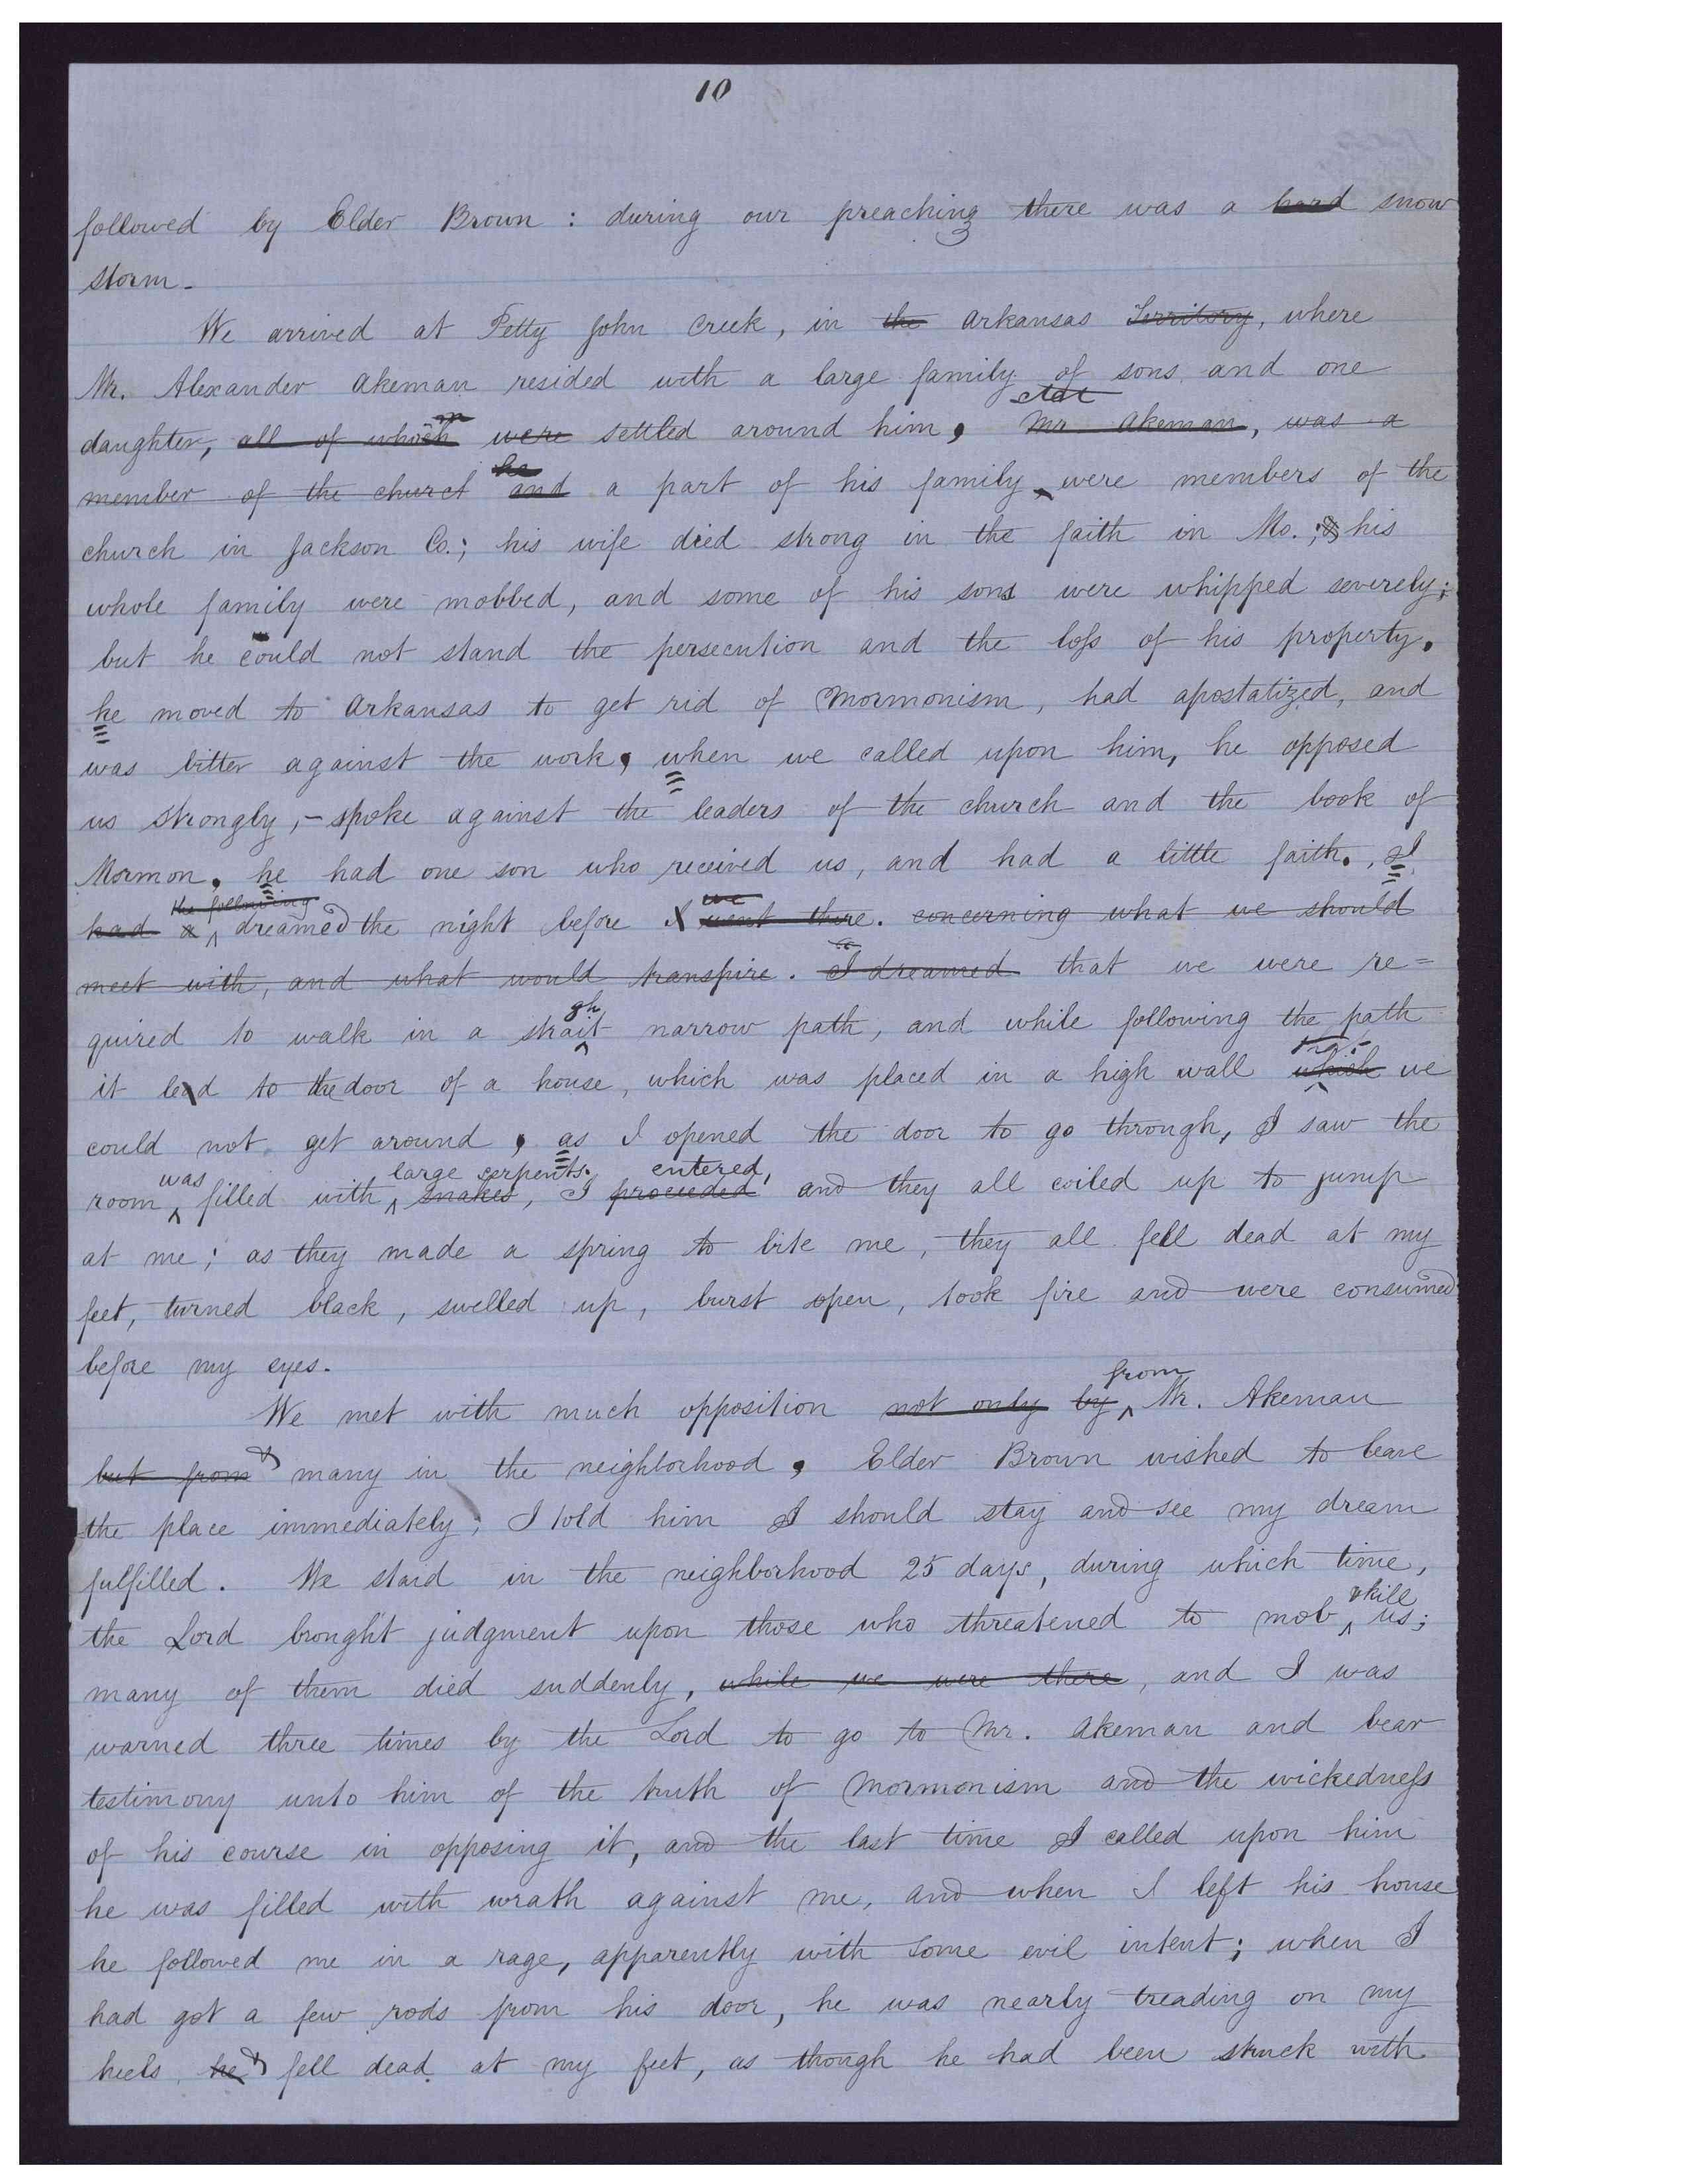 10
followed by Elder Brown : during our preaching there was a hard snow
storm.
We arrived at Petty John Creek, in the Arkansas Territory, where
Mr. Alexander Akeman resided with a large family of sons and one
daughter, all of which were settled around him, Mr Akeman, was a
he
member of the church and a part of his family were members of the
church in Jackson Co.; his wife died strong in the faith in Mo.; & his
whole family were mobbed, and some of his sons were whipped severely;
but he could not stand the persecution and the loss of his property.
he moved to Arkansas to get rid of Mormonism, had apostatized, and
was bitter against the work, when we called upon him, he opposed
us strongly, - spoke against the leaders of the church and the book of
Mormon. he had one son who received us, and had a little faith. , I
the following we
had a dreamed the night before I went there. concerning what we should
meet with, and what would transpire. I dreamed that we were re=
gh
quired to walk in a strait narrow path, and while following the path
it lead to the door of a house, which was placed in a high wall which we
could not get around , as I opened the door to go through, I saw the
was large serpents. entered,
room filled with snakes, I proceeded and they all coiled up to jump
at me; as they made a spring to bite me, they all fell dead at my
feet, turned black, swelled up, burst open, took fire and were consumed
before my eyes.
from
We met with much opposition not only by Mr. Akeman
but from & many in the neighborhood , Elder Brown wished to leave
the place immediately; I told him I should stay and see my dream
fulfilled. We staid in the neighborhood 25 days, during which time,
& kill
the Lord brought judgment upon those who threatened to mob us;
many of them died suddenly, while we were there, and I was
warned three times by the Lord to go to Mr. Akeman and bear
testimony unto him of the truth of Mormonism and the wickedness
of his course in opposing it, and the last time I called upon him
he was filled with wrath against me, and when I left his house
he followed me in a rage, apparently with some evil intent; when I
had got a few rods from his door, he was nearly treading on my
heels, he & fell dead at my feet, as though he had been struck with